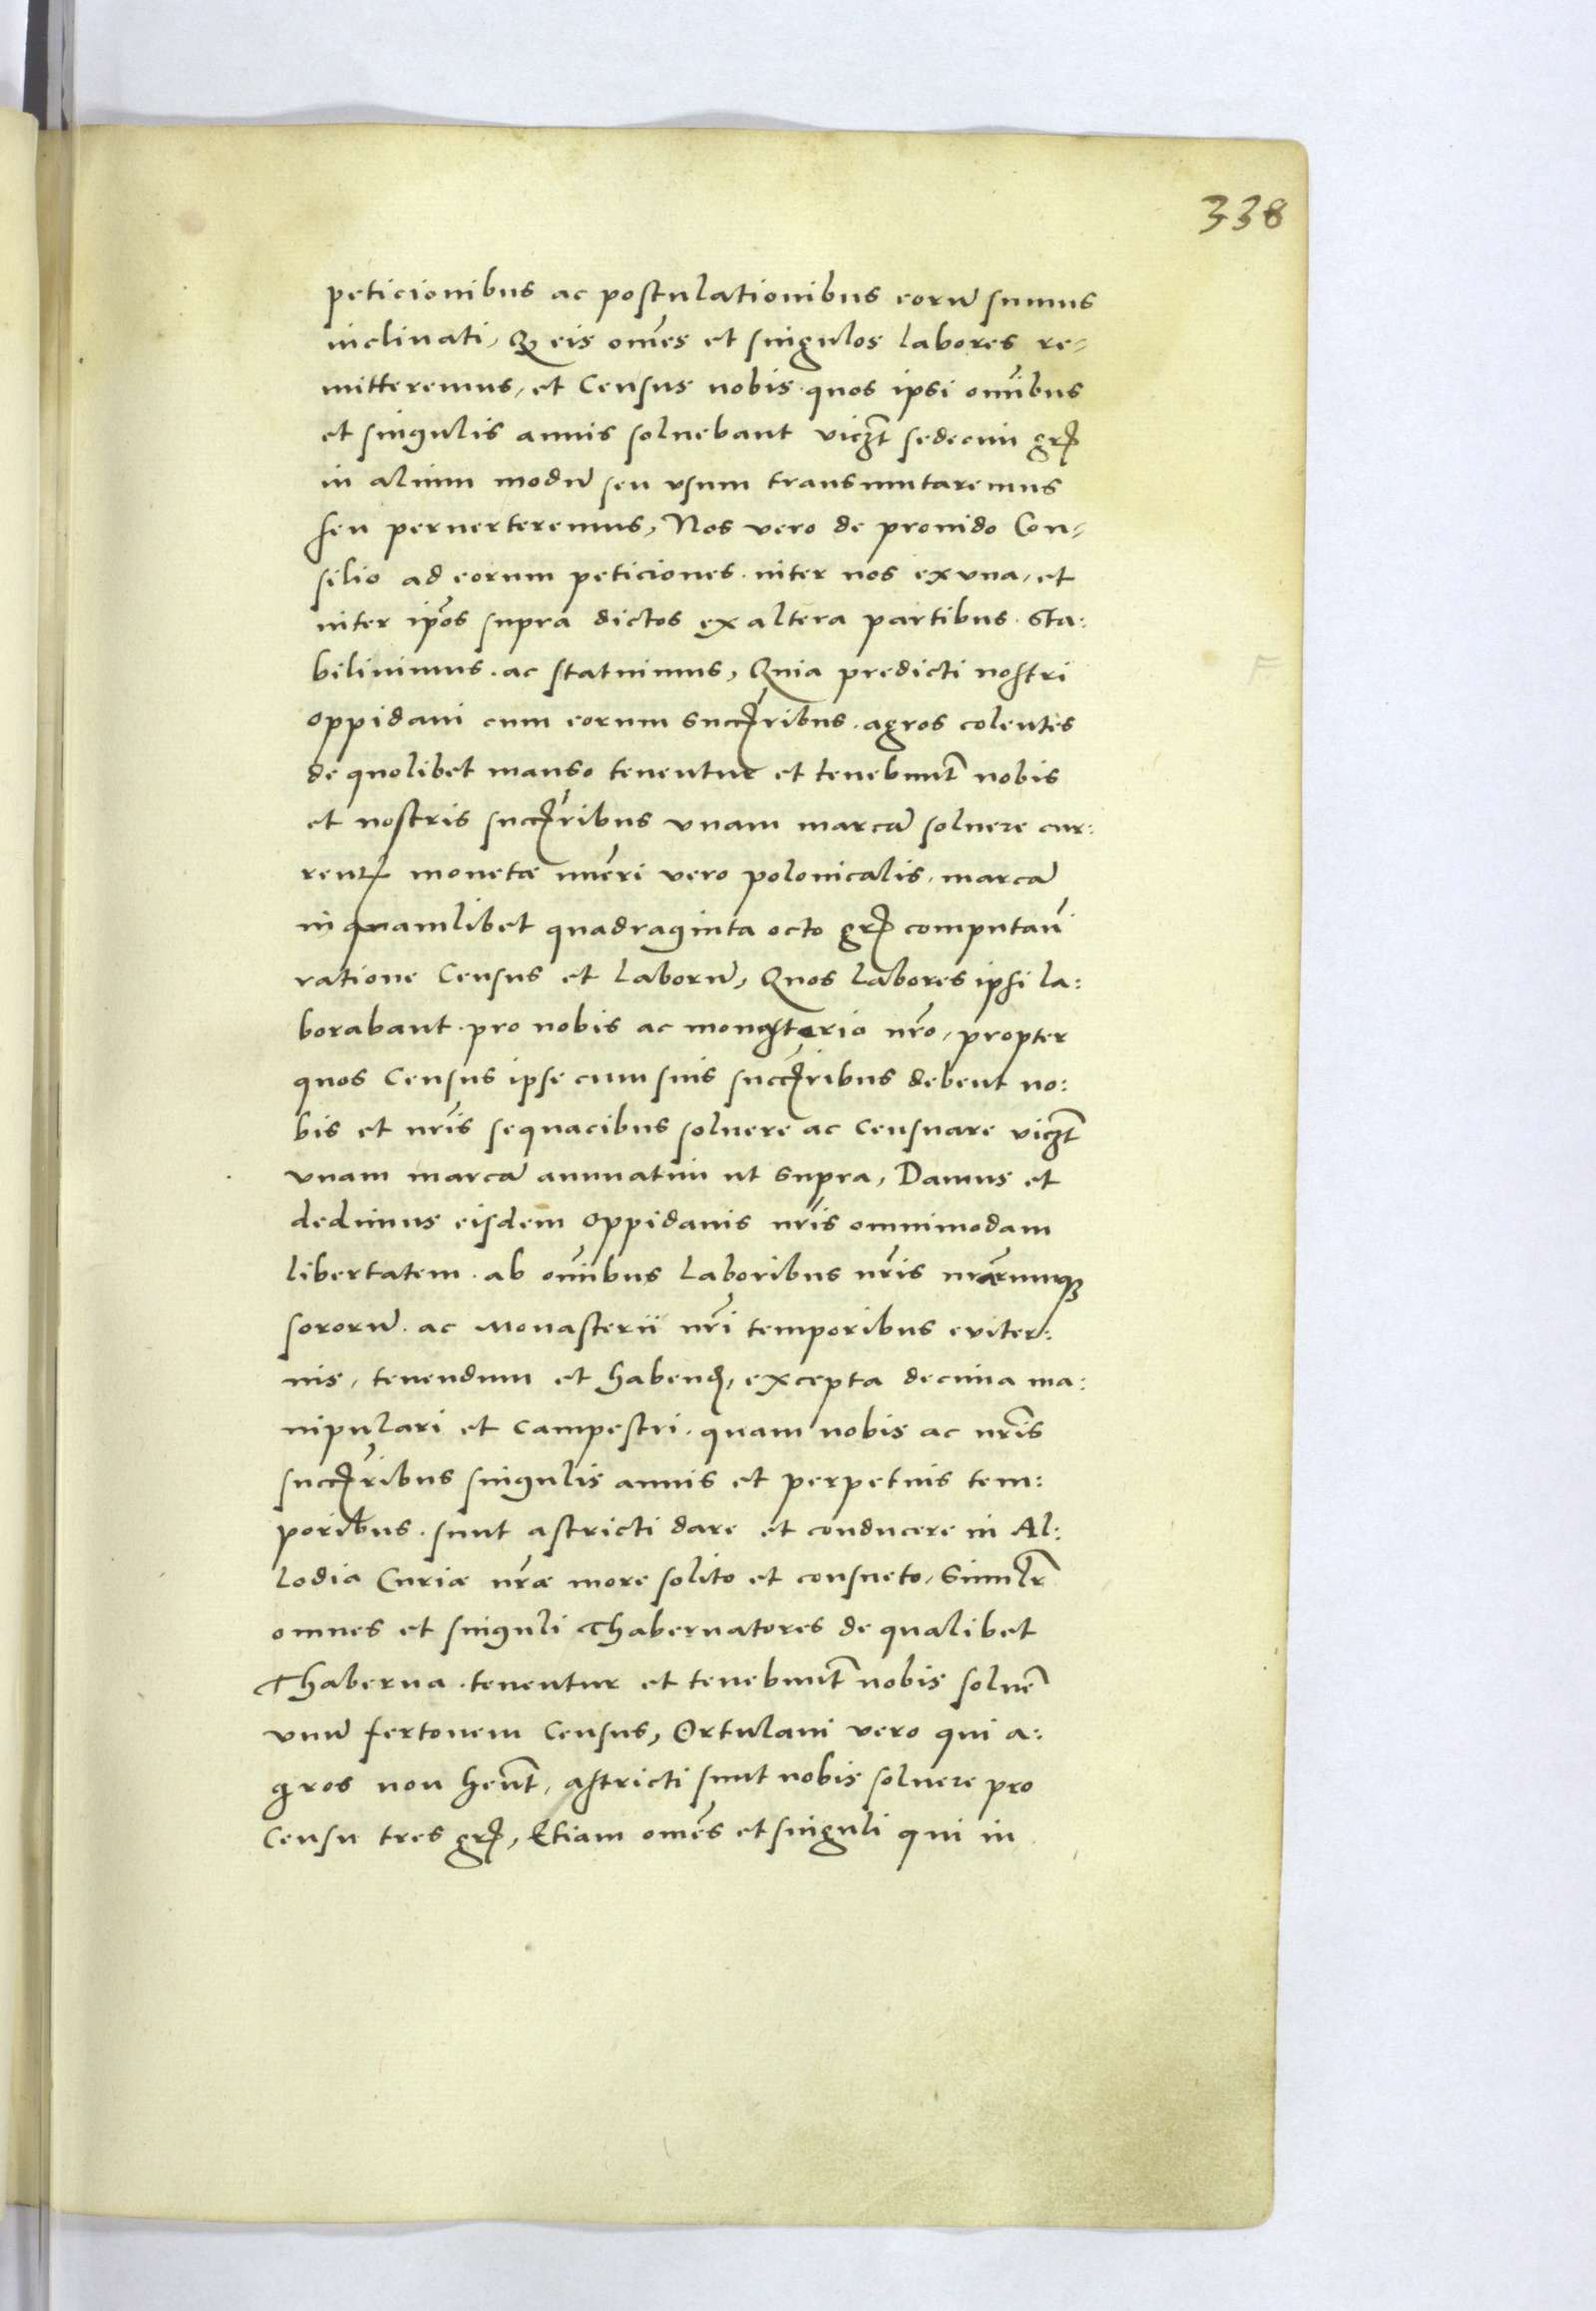 338
peticionibus ac postulationibus eorū sumus
inclinati, Qꝫ eis om̄es et singulos labores re-
mitteremus, et Census nobis quos ipsi om̄ibus
et singulis annis soluebant vicꝫt sedecim grꝭ
in alium modū seu vsum transmutaremus
seu peruerteremus, Nos vero de prouido Con-
silio ad eorum peticiones. inter nos ex vna, et
inter ip̄os supra dictos ex altera partibus. Sta:
biliuimus. ac statuimus, Quia predicti nostri
oppidani cum eorum succꝭribus. agros colentes
de quolibet manso tenentur et tenebunt̄ nobis
et nostris succꝭribus vnam marcā soluere cur:
rentꝭ monetæ nūeri vero polonicalis. marcā
in quamlibet quadraginta octo grꝭ computan̄
ratione Census et laborū, Quos labores ipsi la:
borabant. pro nobis ac monasterio nr̄o, propter
quos Census ipse cum suis succꝭribus debent no:
bis et nr̄is sequacibus soluere ac censuare vicꝫt
vnam marcā annuatim ut supra, Damus et
dedimus eisdem oppidanis nr̄is omnimodam
libertatem. ab om̄ibus laboribus nr̄is nr̄arumqꝫ
sororū. ac Monasterii nr̄i temporibus euiter:
nis, tenendum et habendꝭ, excepta decima ma:
nipulari et campestri. quam nobis ac nr̄is
succꝭribus singulis annis et perpetuis tem:
poribus. sunt astricti dare et conducere in Al:
lodia Curiæ nr̄æ more solito et consueto, Simil̄r
omnes et singuli Thabernatores de qualibet
Thaberna. tenentur et tenebunt̄ nobis soluer̄
vnū fertonem Census, Ortulani vero qui a:
gros non hen̄t, astricti sunt nobis soluere pro
Censu tres grꝭ, Etiam om̄es et singuli qui in